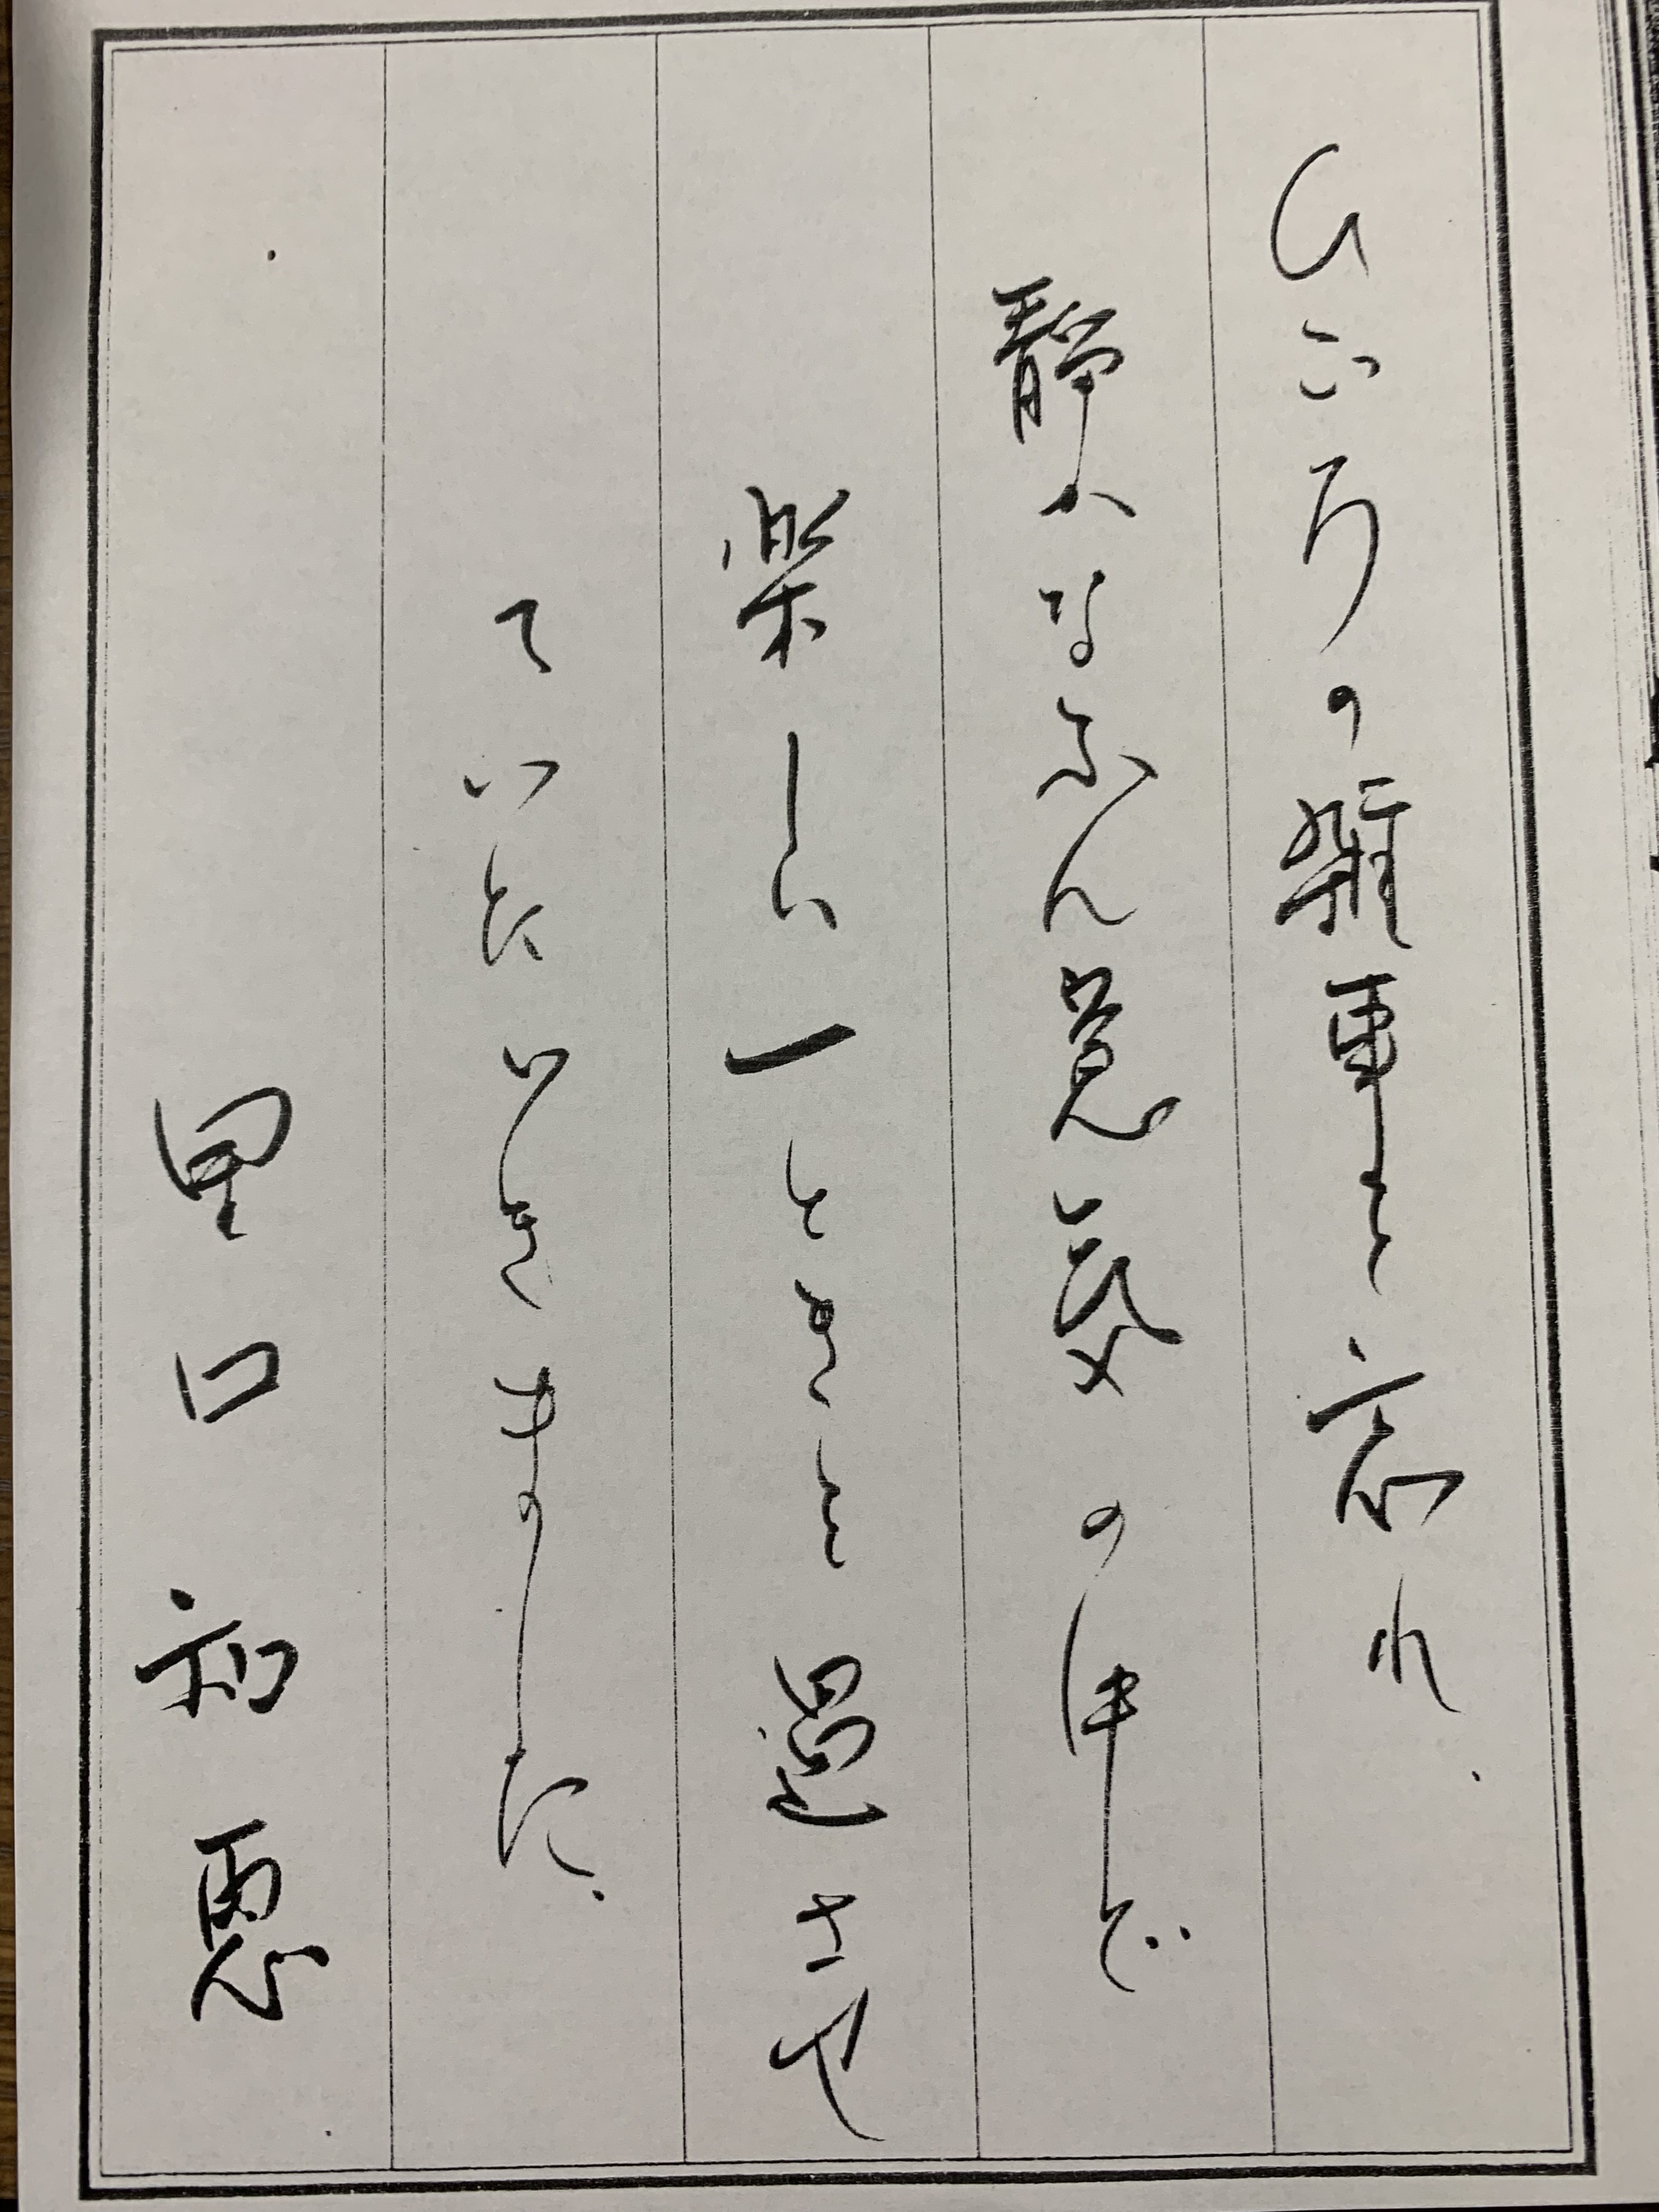 ひごろの雑事を忘れ、
静かなふん囲気の中で
楽しい一ときを過させ
ていただきました。
里口初恵